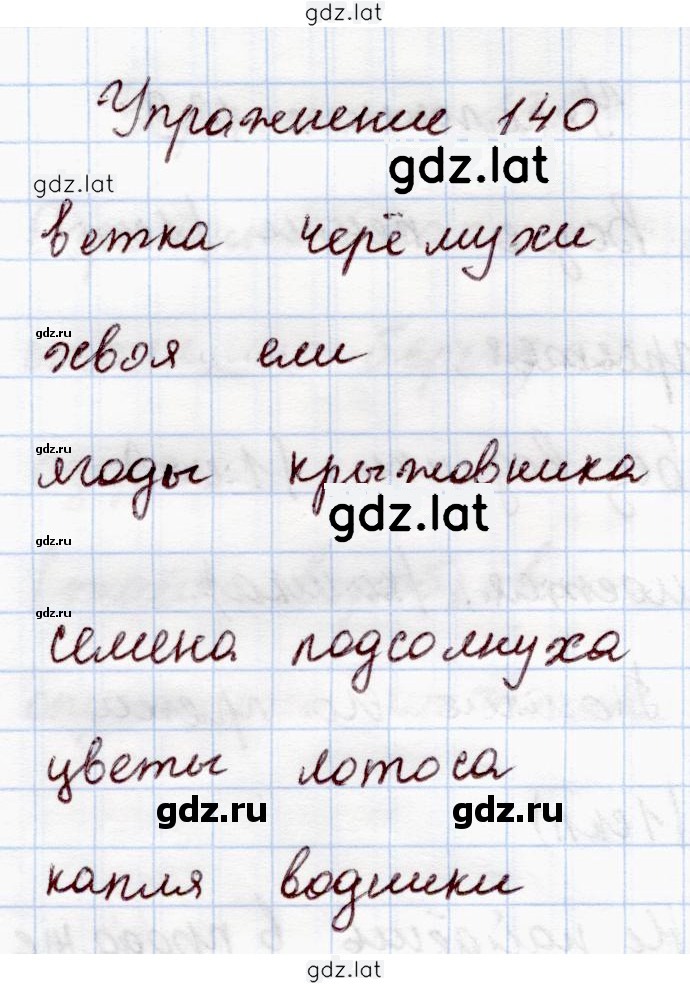 gdz.lat
Упражнение 140
gdz.lat
gdz.lat
ветка черёмухи
gdz.ru
хвоя ели
ягоды крыжовника
gdz.lat
gdz.ru
gdz.ru
семена подсолнуха
цветы лотоса
gdz.ru gdz.ru
капля водички
gdz.lat